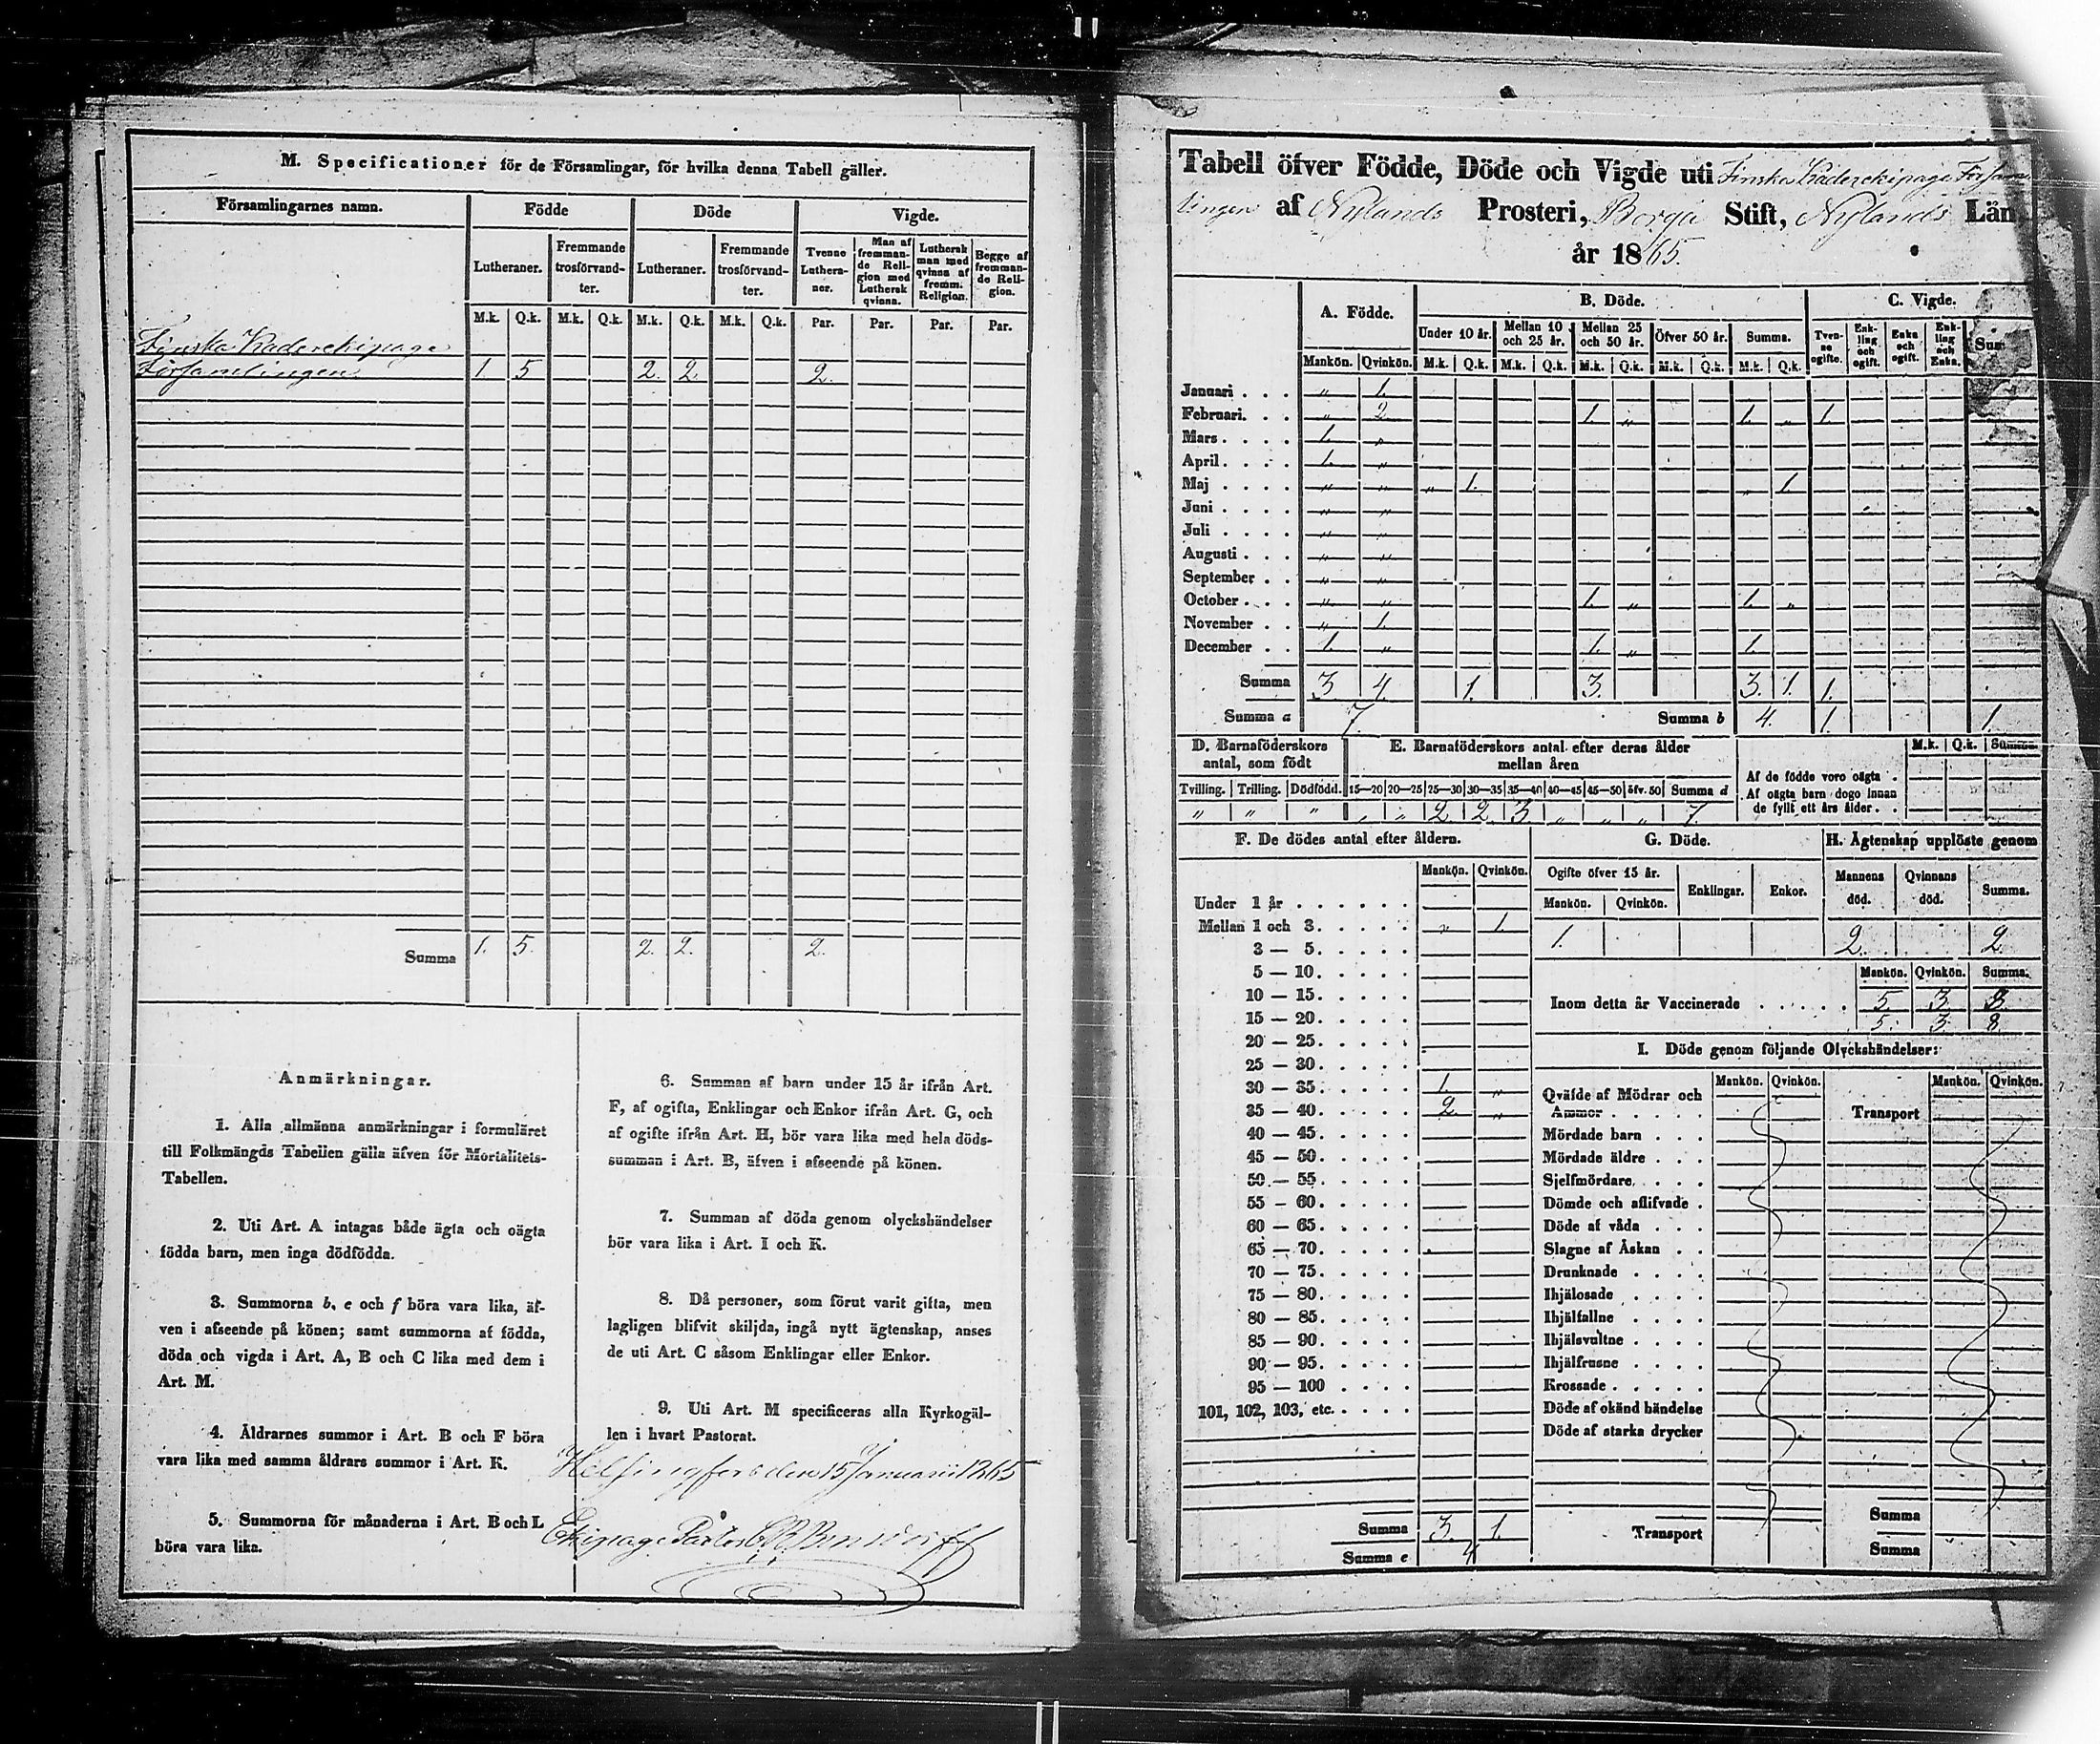 M. Specificationer för de Församlingar, för hvilka denna Tabell gäller.
Församlingarnes namn. Födde Döde Vigde.
Lutheraner. Fremmande trosförvandter. Lutheraner. Fremmande trosförvandter. Tvenne Lutheraner. Man af fremmande Religion med Luthersk qvinna. Luthersk man med qvinna af fremm. Religion. Begge af fremmande Religion.
M.k. Q.k. M.k. Q.k. M.k. Q.k. M.k. Q.k. Par. Par. Par. Par.
Finska Kaderekipage
Församlingen. 1. 5 2. 2. 2.
Summa 1. 5. 2. 2. 2.
Anmärkningar.
1. Alla allmänna anmärkningar i formuläret
till Folkmängds Tabellen gälla äfven för Mortalitets-
Tabellen.
2. Uti Art. A intagas både ägta och oägta
födda barn, men inga dödfödda.
3. Summorna b, e och f böra vara lika, äf-
ven i afseende på könen; samt summorna af födda,
döda och vigda i Art. A, B och C lika med dem i
Art. M.
4. Åldrarnes summor i Art. B och F böra
vara lika med samma åldrars summor i Art. K.
5. Summorna för månaderna i Art. B och L
böra vara lika.
6. Summan af barn under 15 år ifrån Art.
F, af ogifta, Enklingar och Enkor ifrån Art. G, och
af ogifte ifrån Art. H, bör vara lika med hela döds-
summan i Art. B, äfven i afseende på könen.
7. Summan af döda genom olyckshändelser
bör vara lika i Art. I och K.
8. Då personer, som förut varit gifta, men
lagligen blifvit skiljda, ingå nytt ägtenskap, anses
de uti Art. C såsom Enklingar eller Enkor.
9. Uti Art. M specificeras alla Kyrkogäl-
len i hvart Pastorat.
Helsingfors den 15 Januarii 1865
Ekipage Pastor
Tabell öfver Födde, Döde och Vigde uti Finska Kaderekipage Försam
lingen af Nylands Prosteri, Borgå Stift, Nylands Län
år 1865.
A. Födde. B. Döde. C. Vigde.
Under 10 år. Mellan 10 och 25 år. Mellan 25 och 50 år. Öfver 50 år. Summa. Tvenne ogifte. Enkling och ogift. Enka och ogift. Enkling och Enka. Sum
Mankön. Qvinkön. M.k. Q.k. M.k. Q.k. M.k. Q.k. M.k. Q.k. M.k. Q.k.
Januari . . . „ 1.
Februari. . . „ 2. 1. „ 1. „ 1.
Mars . . . . 1. „
April . . . . 1. „
Maj . . . . „ „ „ 1. „ 1.
Juni . . . . „ „
Juli . . . . „ „
Augusti . . . „ „
September . . „ „
October . . . „ „ 1. „ 1. „
November . . „ 1.
December . . 1. „ 1. „ 1.
Summa 3 4. 1. 3. 3. 1. 1.
Summa a 7. Summa b 4. 1. 1.
D. Barnaföderskors antal, som födt
Tvilling. Trilling. Dödfödd.
„ „ „
E. Barnaföderskors antal efter deras ålder mellan åren
15—20 20—25 25—30 30—35 35—40 40—45 45—50 öfv. 50 Summa d
„ „ 2 2. 3 „ „ „ 7.
M.k. Q.k. Summa
Af de födde voro oägta .
Af oägta barn dogo innan
de fyllt ett års ålder . .
F. De dödes antal efter åldern.
Mankön. Qvinkön.
Under 1 år . . . . . .
Mellan 1 och 3. . . . . „ 1.
3 — 5. . . . .
5 — 10. . . . .
10 — 15. . . . .
15 — 20. . . . .
20 — 25. . . . .
25 — 30. . . . .
30 — 35. . . . . 1. „
35 — 40. . . . . 2. „
40 — 45. . . . .
45 — 50. . . . .
50 — 55. . . . .
55 — 60. . . . .
60 — 65. . . . .
65 — 70. . . . .
70 — 75. . . . .
75 — 80. . . . .
80 — 85. . . . .
85 — 90. . . . .
90 — 95. . . . .
95 — 100 . . . .
101, 102, 103, etc. . . . .
Summa 3. 1.
Summa e 4
G. Döde.
Ogifte öfver 15 år. Enklingar. Enkor.
Mankön. Qvinkön.
1.
H. Ägtenskap upplöste genom
Mannens död. Qvinnans död. Summa.
2. 2
Mankön. Qvinkön. Summa.
Inom detta år Vaccinerade . . . . . . 5. 3. 8.
5. 3. 8.
I. Döde genom följande Olyckshändelser:
Mankön. Qvinkön. Mankön. Qvinkön.
Qväfde af Mödrar och
Ammor . . . . . Transport
Mördade barn . . .
Mördade äldre . . .
Sjelfmördare. . . .
Dömde och aflifvade .
Döde af våda . . .
Slagne af Åskan . .
Drunknade . . . .
Ihjälosade . . . .
Ihjälfallne . . . .
Ihjälsvultne . . . .
Ihjälfrusne . . . .
Krossade . . . . .
Döde af okänd händelse
Döde af starka drycker
Summa
Transport
Summa